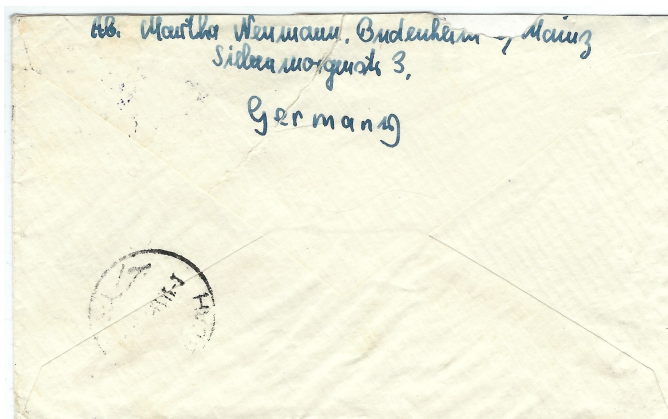 Ab. Martha Neumann, Budenheim, Mainz
Siebenmorgenstr 3,
Germany